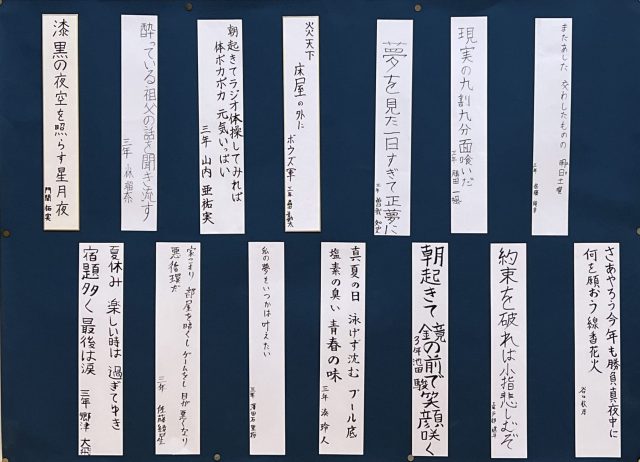 またあした 交わしたものの 明日土曜
三年
現実の九割九分面喰いだ
三年 勝田 一颯
夢を見た一日すぎて正夢に
三年
炎天下
床屋の外に
ボウズ軍
朝起きてラジオ体操してみれば
体ポカポカ 元気いっぱい
三年 山内 亜祐実
酔っている祖父の話を聞き流す
三年 小林
漆黒の夜空を照らす星月夜
門間 祐実
さあやろう今年も勝負真夜中に
何を願おう線香花火
約束を破れば小指悲しむぞ
朝起きて 鏡の前で笑顔咲く
3年 池田 駿
真夏の日 泳げず沈む プール底
塩素の臭い 青春の味
三年 湊 玲人
私の夢をいつかは叶えたい
三年
家こもり 部屋を暗くし ゲームをし 目が悪くなり
悪循環だ
三年 佐藤
夏休み 楽しい時は 過ぎてゆき
宿題多く 最後は涙
三年 郷津 大